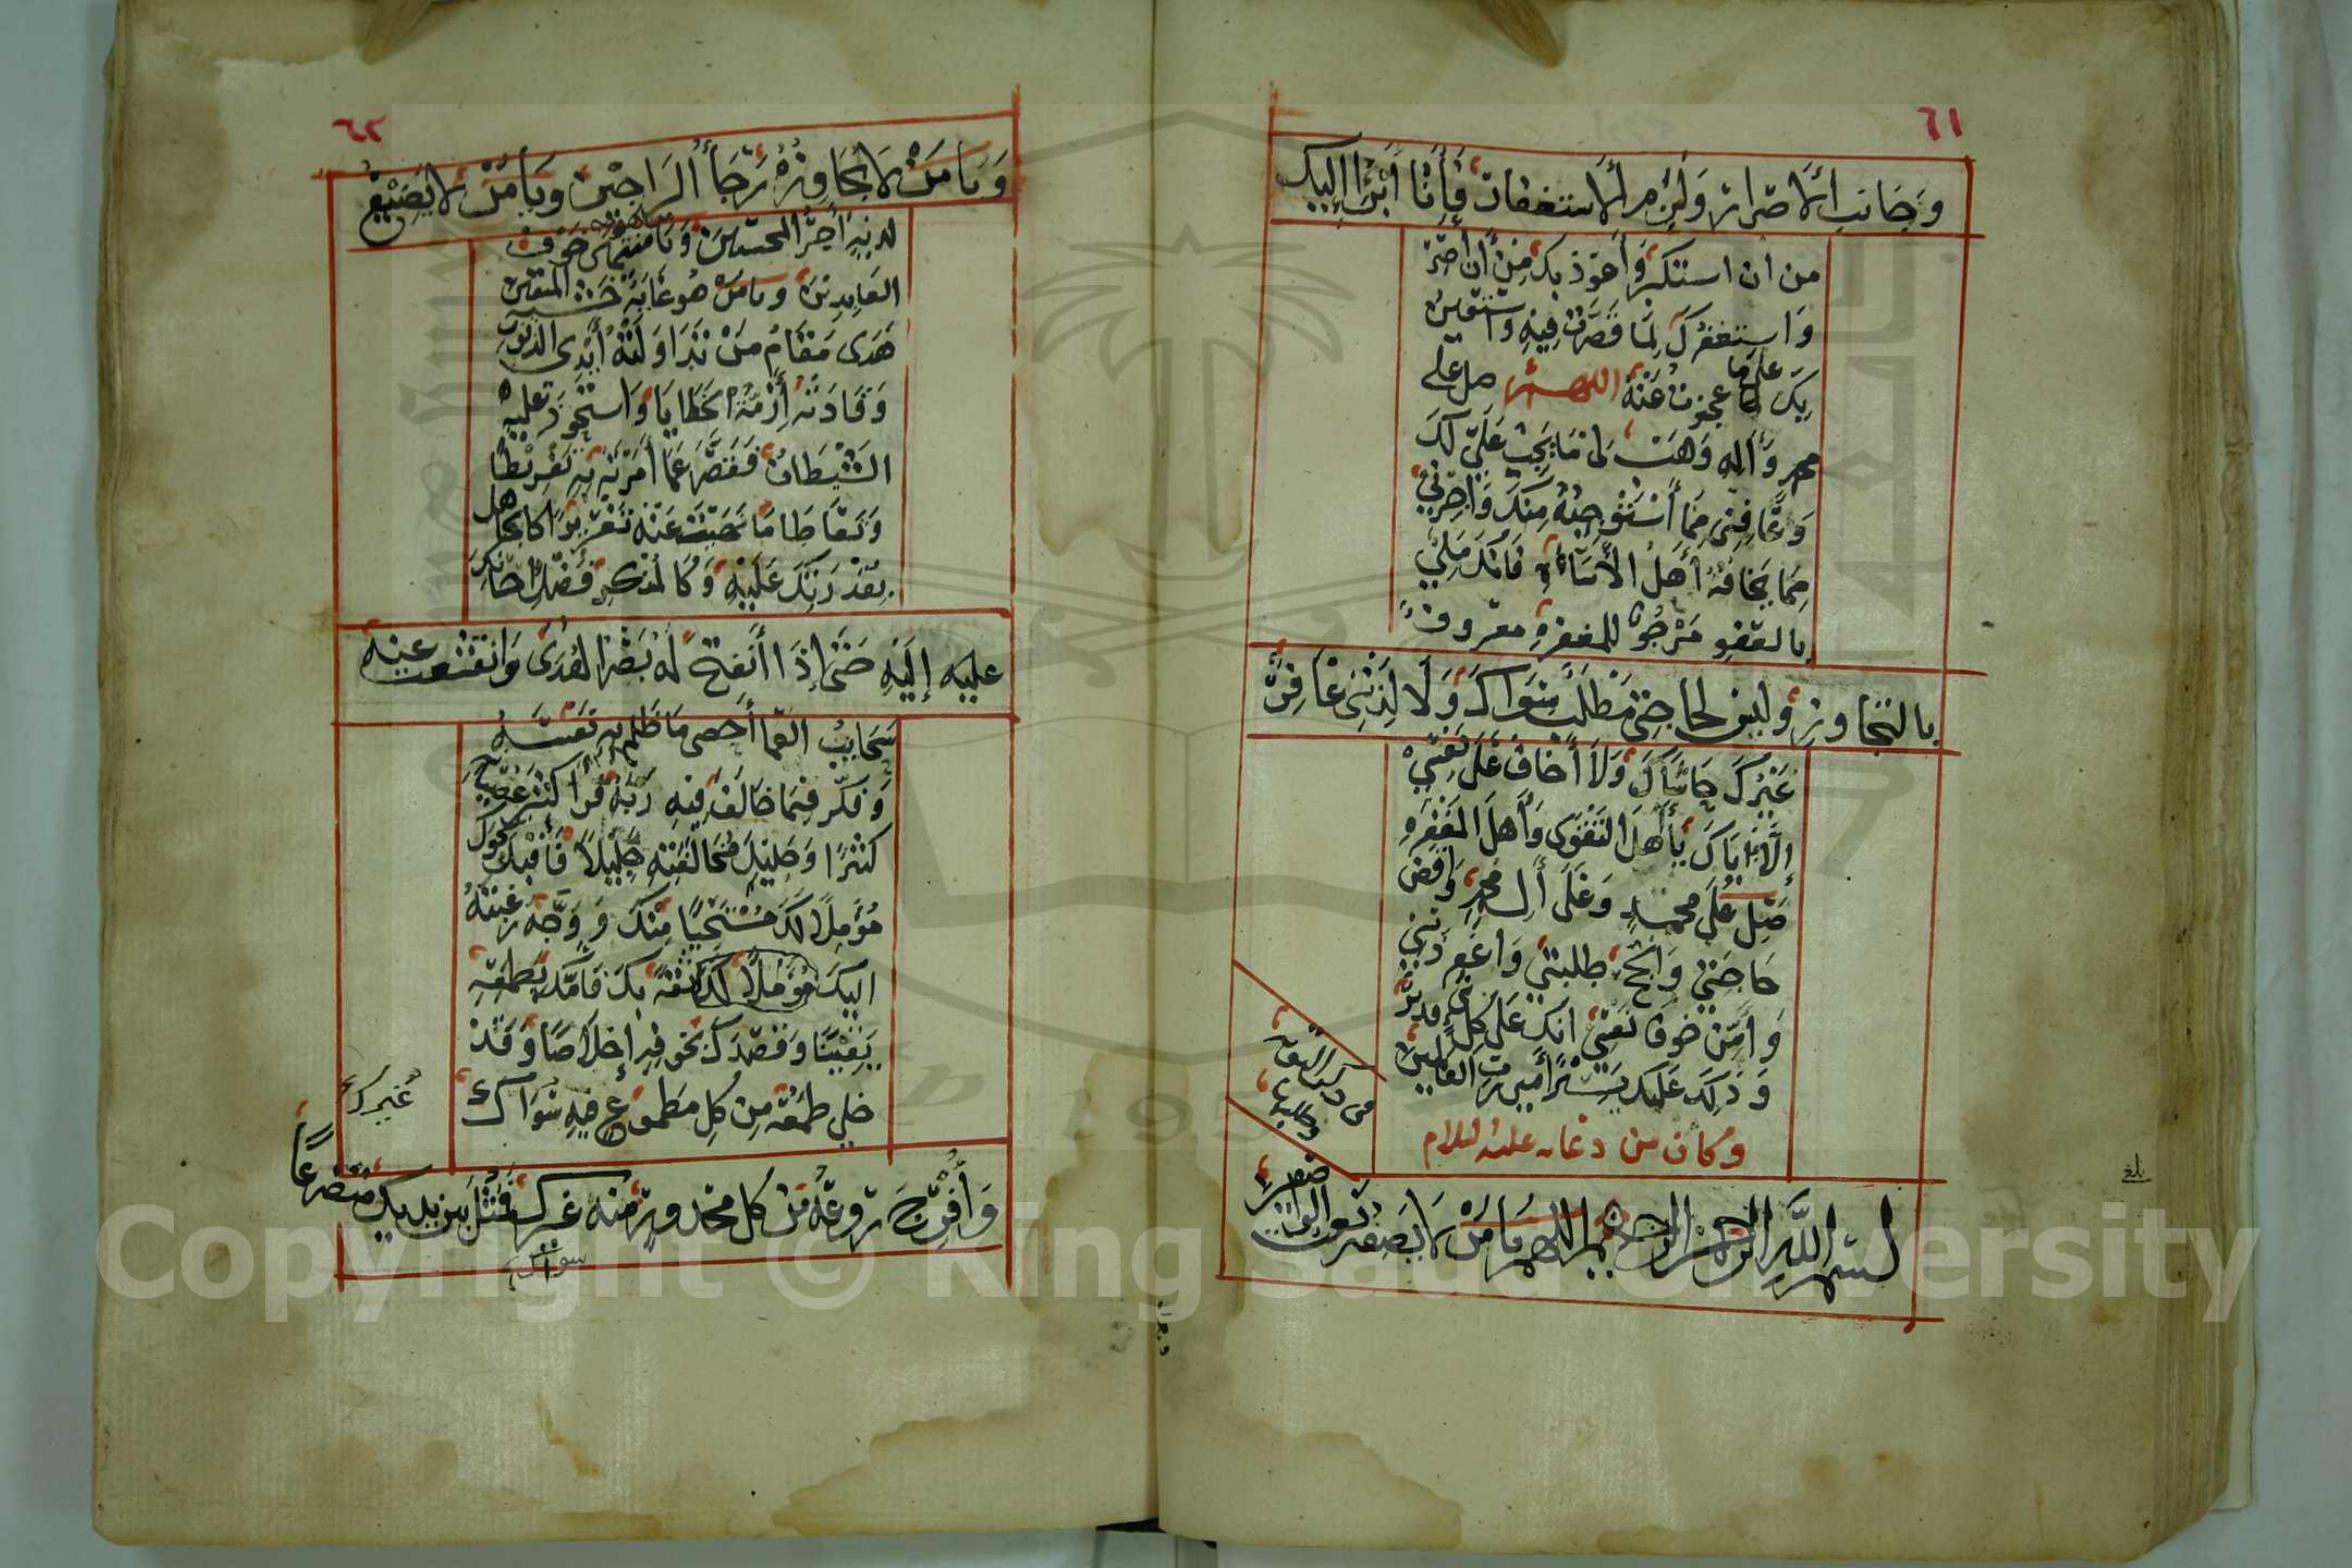 ٦١
وجانب الاصرار ولزم الاستغفار فإنا أبرأ إليك
من ان استكبر وأعوذ بك من أن اصر
واستغفرك لما قصرت فيه واستعين
بك على ما عجزت عنه اللهم صل على
محمد وآله وهب لي ما يجب علي لك
وعافني مما أستوجبه منك واجرني
مما يخافه أهل الأساءة فانك ملي
بالعفو مرجو للمغفرة معروف
بالتجاوز وليس لحاجتي مطلب سواك ولا لذنبي غافر
غيرك حاشاك ولا أخاف على نفسي
إلا اياك يا أهل التقوى وأهل المغفره
صل على محمد وعلى أل محمد واقض
حاجتي وانجح طلبتي واغفر ذنبي
وأمن خوف نفسي انك على كل شي قدير
وذلك عليك يسير أمين رب العالمين
وكان من دعائه عليه السلام
في
بسم الله الرحمن الرحيم اللهم يا من لا يصفه نعت الواصفين
بلغ
٦٢
ويا من لا يجاوزه رجأ الراجين ويا من لا يضيع
لديه أجر المحسنين ويا من هو منتهى خوف
العابدين ويا من هو غاية خشية المتقين
هدى مقام من تداولته أيدي الذنوب
وقادته أزمة الخطايا واستحوذ عليه
الشيطان فقصر عما أمرت به تفريطا
وتعاطا ما نهيت عنه تغريرا كالجاهل
بقدرتك عليه وكالمنكر فضل احسانك
عليه إليه حتى إذا أنفتح له بصر الهدى وانقشعت عنه
سحايب العما أحصى ما ظلم به نفسه
وفكر فيما خالف فيه ربه فرأ كثير عصيانه
كثيرا وجليل مخالفته جليلا فأقبل نحوك
مؤملا لك مستحييا منك ووجه رغبته
اليك مؤملا لك ثقة بك فأمك بطمعه
يقينا وقصدك بخوفه إخلاصا وقد
خلى طمعه من كل مطموع فيه سواك
غيرك
وأفرج روعه من كل محذور منه غيرك فمثل بين يديك متضرعا
سواك
Copyright © King Saud University